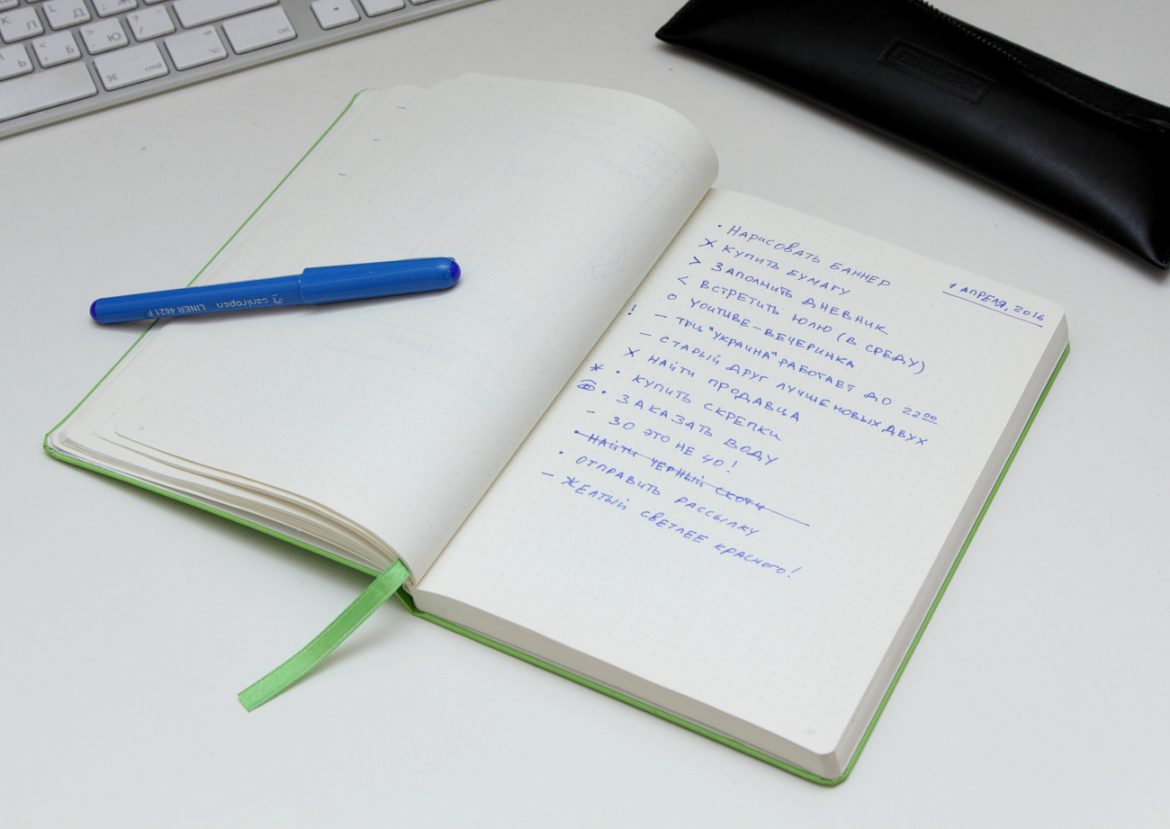 1 АПРЕЛЯ, 2016
• НАРИСОВАТЬ БАННЕР
X КУПИТЬ БУМАГУ
> ЗАПОЛНИТЬ ДНЕВНИК
< ВСТРЕТИТЬ ЮЛЮ (В СРЕДУ)
O YOUTUBE-ВЕЧЕРИНКА
! – ТРЦ "УКРАИНА" РАБОТАЕТ ДО 22 00
– СТАРЫЙ ДРУГ ЛУЧШЕ НОВЫХ ДВУХ
X НАЙТИ ПРОДАВЦА
* • КУПИТЬ СКРЕПКИ
• ЗАКАЗАТЬ ВОДУ
– 30 ЭТО НЕ 40!
• НАЙТИ ЧЕРНЫЙ СКОТЧ
• ОТПРАВИТЬ РАССЫЛКУ
– ЖЕЛТЫЙ СВЕТЛЕЕ КРАСНОГО!
centropen
LINER 4621 F